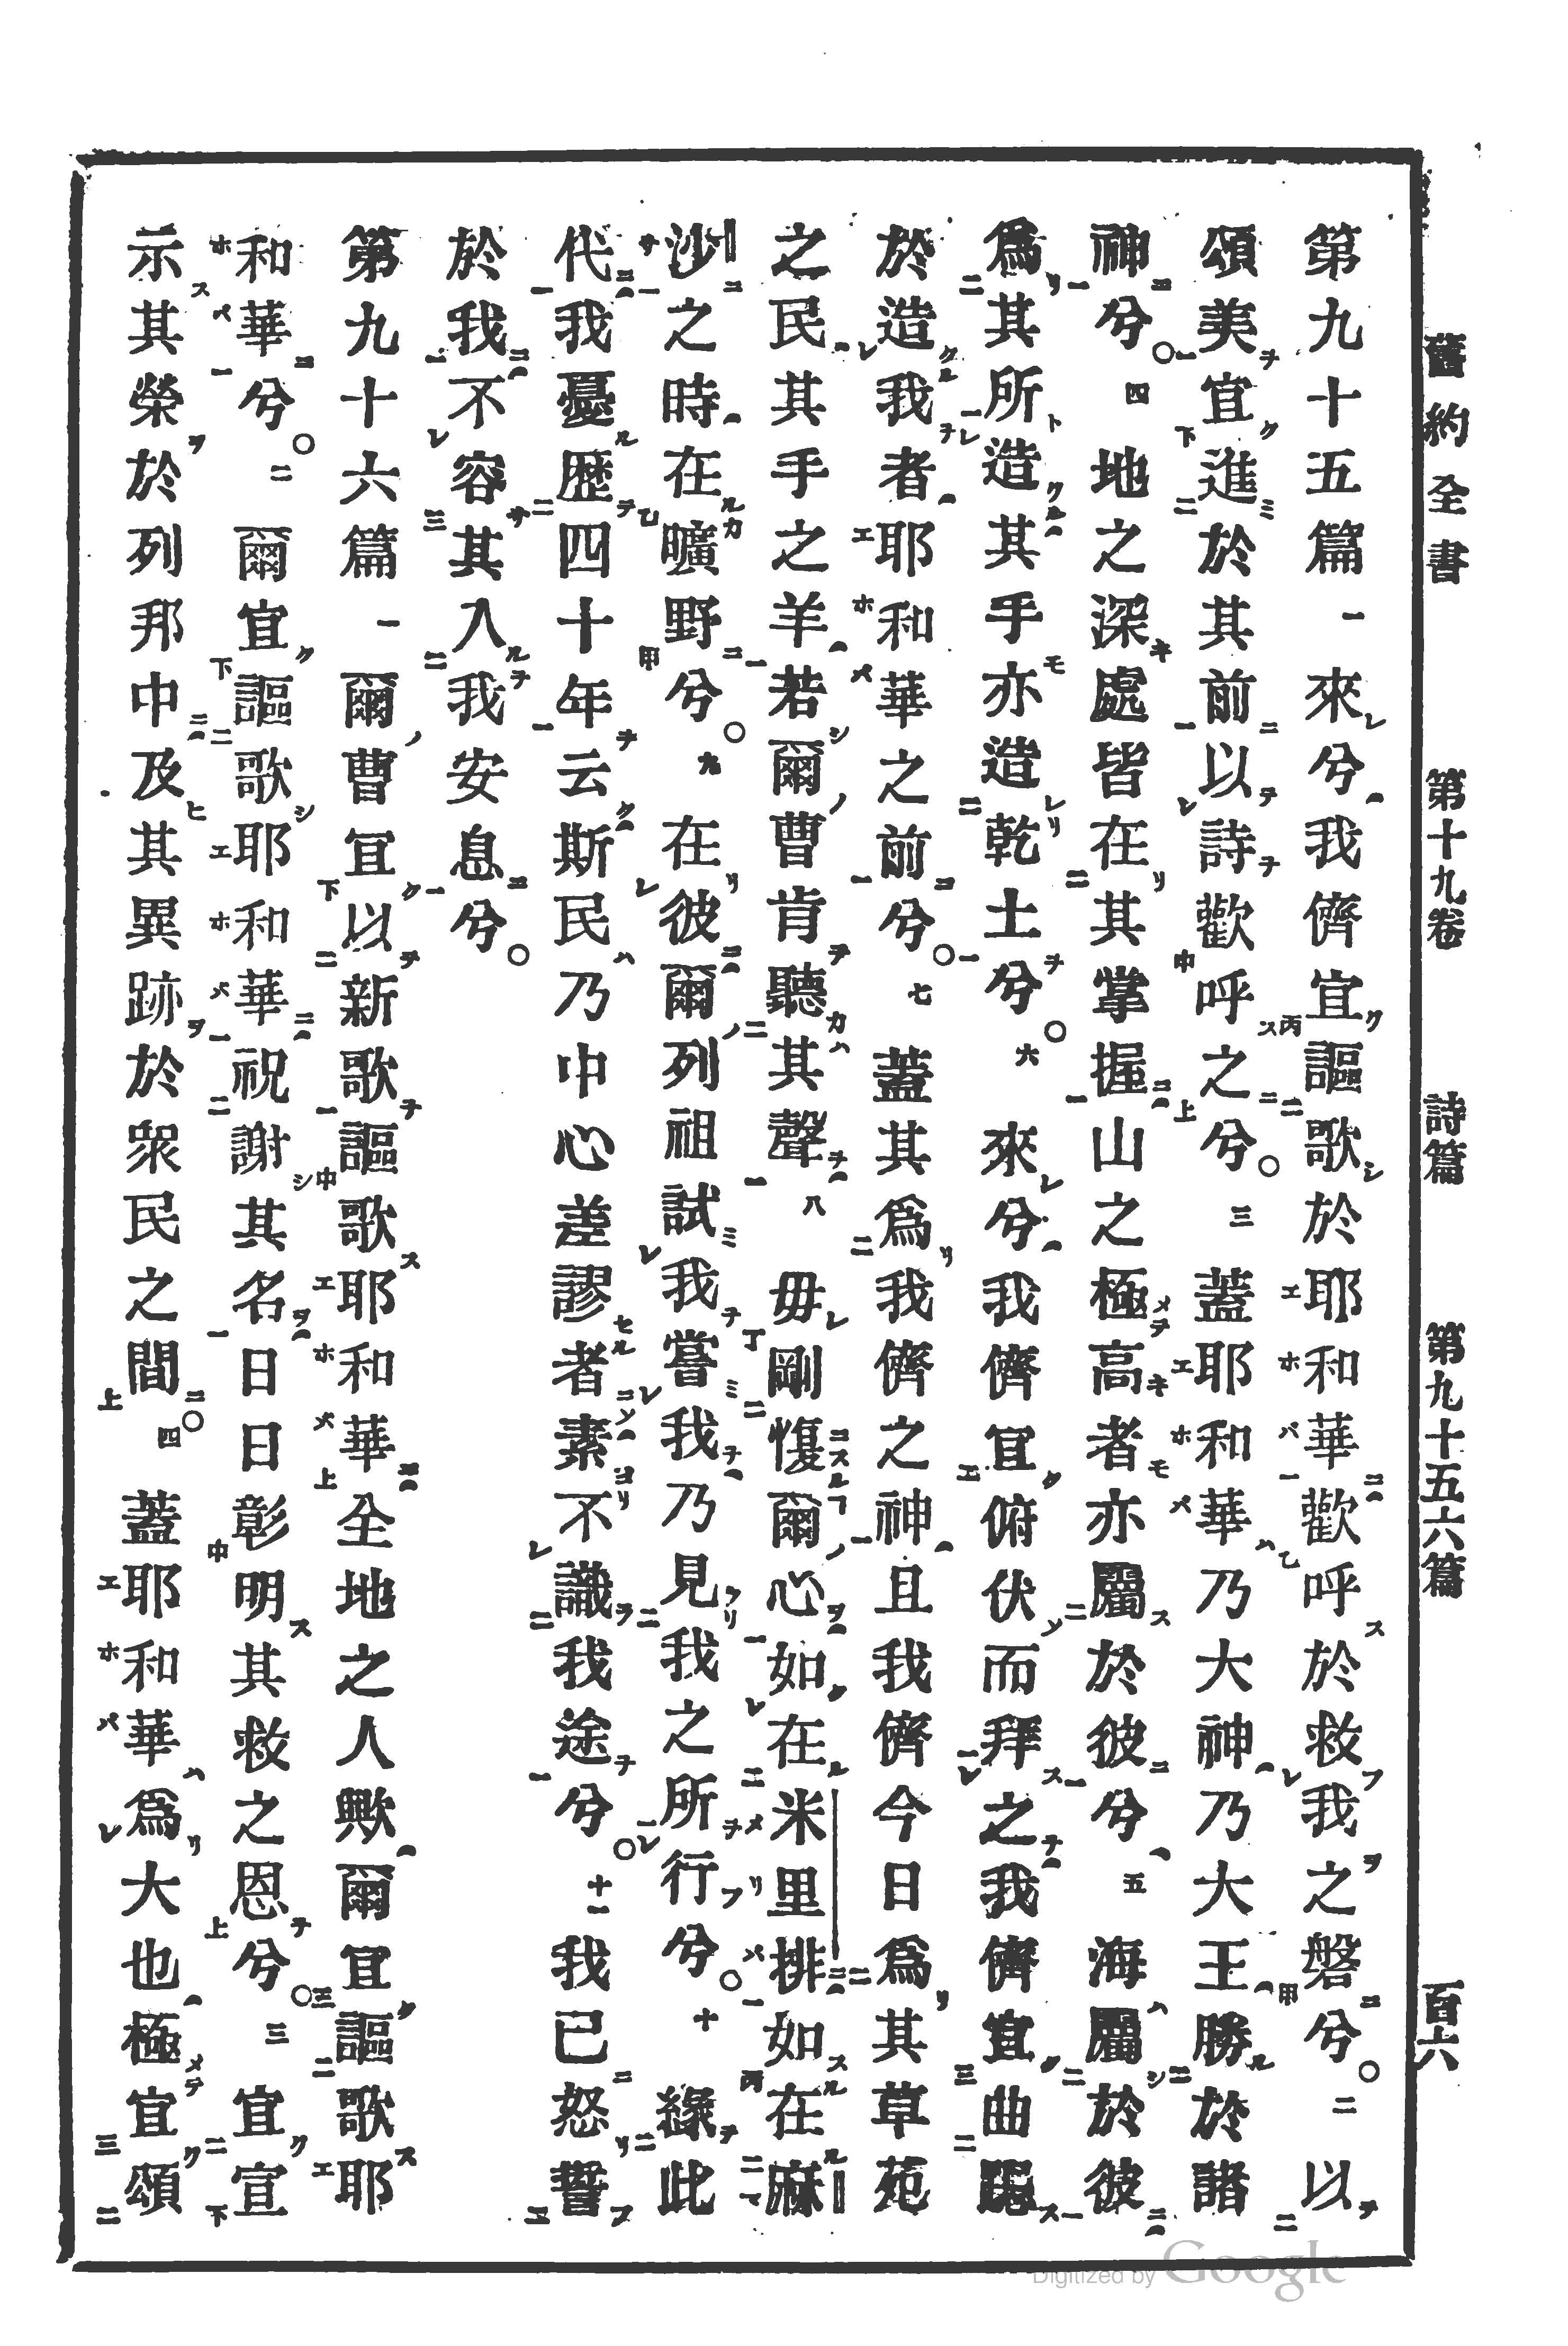 舊約全書 第十九卷 詩篇 第九十五六篇 百六
第九十五篇 一 來兮我儕宜謳歌於耶和華歡呼於救我之磐兮○二 以
頌美宜進於其前以詩歡呼之兮○三 蓋耶和華乃大神乃大王勝於諸
神兮○四 地之深處皆在其掌握山之極高者亦屬於彼兮 五 海屬於彼
爲其所造其手亦造乾土兮○六 來兮我儕宜俯伏而拜之我儕宜曲跽
於造我者耶和華之前兮○七 蓋其爲我儕之神且我儕今日爲其草苑
之民其手之羊若爾曹肯聽其聲 八 毋剛愎爾心如在米里排如在麻
沙之時在曠野兮○九 在彼爾列祖試我嘗我乃見我之所行兮○十 緣此
代我憂歷四十年云斯民乃中心差謬者素不識我途兮○十一 我已怒誓
於我不容其入我安息兮○
第九十六篇 一 爾曹宜以新歌謳歌耶和華全地之人歟爾宜謳歌耶
和華兮○二 爾宜謳歌耶和華祝謝其名日日彰明其救之恩兮○三 宜宣
示其榮於列邦中及其異跡於衆民之間○四 蓋耶和華爲大也極宜頌
Digitized by Google